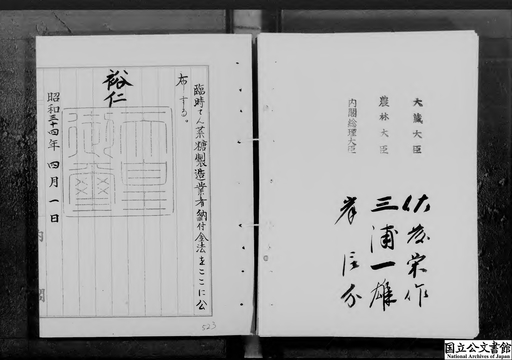 大蔵大臣
農林大臣
内閣総理大臣
佐藤栄作
三浦一雄
岸信介
臨時てん菜糖製造業者納付金法をここに公
布する。
裕仁
天皇
御璽
昭和三十四年四月一日
内閣
523
国立公文書館
National Archives of Japan